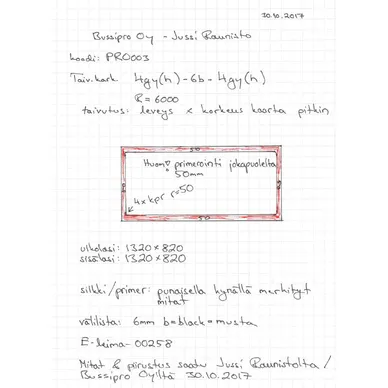 30.10.2017
Bussipro Oy - Jussi Raunisto
koodi: PRO003
Taiv.kork. 4gy(h)-6b-4gy(h)
R = 6000
taivutus: leveys x korkeus kaarta pitkin
50
Huom! primerointi jokapuolelta
50mm
4x kpr r=50
50
ulkolasi: 1320 x 820
sisälasi: 1320 x 820
silkki/primer: punaisella kynällä merkityt
mitat
välilista: 6mm b=black=musta
E-leima-00258
Mitat & piirustus saatu Jussi Raunistolta /
Bussipro Oy:ltä 30.10.2017